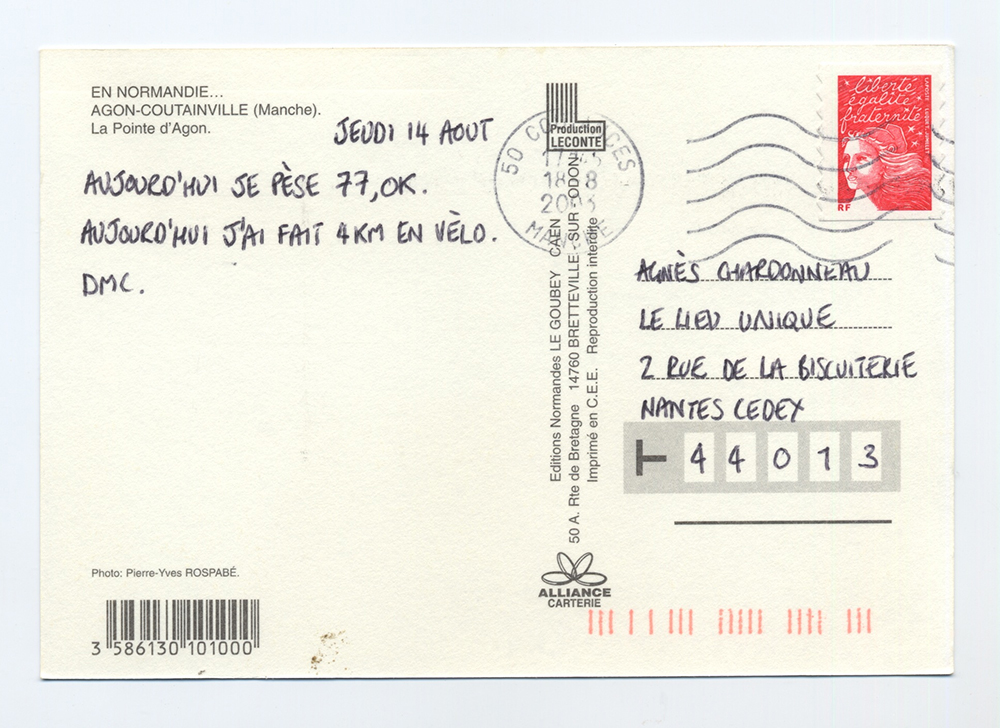 EN NORMANDIE...
AGON-COUTAINVILLE (Manche).
La Pointe d'Agon.
JEUDI 14 AOUT
AUJOURD'HUI JE PÈSE 77,0K.
AUJOURD'HUI J'AI FAIT 4KM EN VÈLO.
DMC.
Photo: Pierre-Yves ROSPABÉ.
3 586130 101000
Production
LECONTE
Editions Normandes LE GOUBEY CAEN
50 A. Rte de Bretagne 14760 BRETTEVILLE SUR ODON
Imprimé en C.E.E. Reproduction interdite
ALLIANCE
CARTERIE
50
MANCHE
liberté
égalité
fraternité
RF
AGNÈS CHARDONNEAU
LE LIEU UNIQUE
2 RUE DE LA BISCUITERIE
NANTES CEDEX
44013